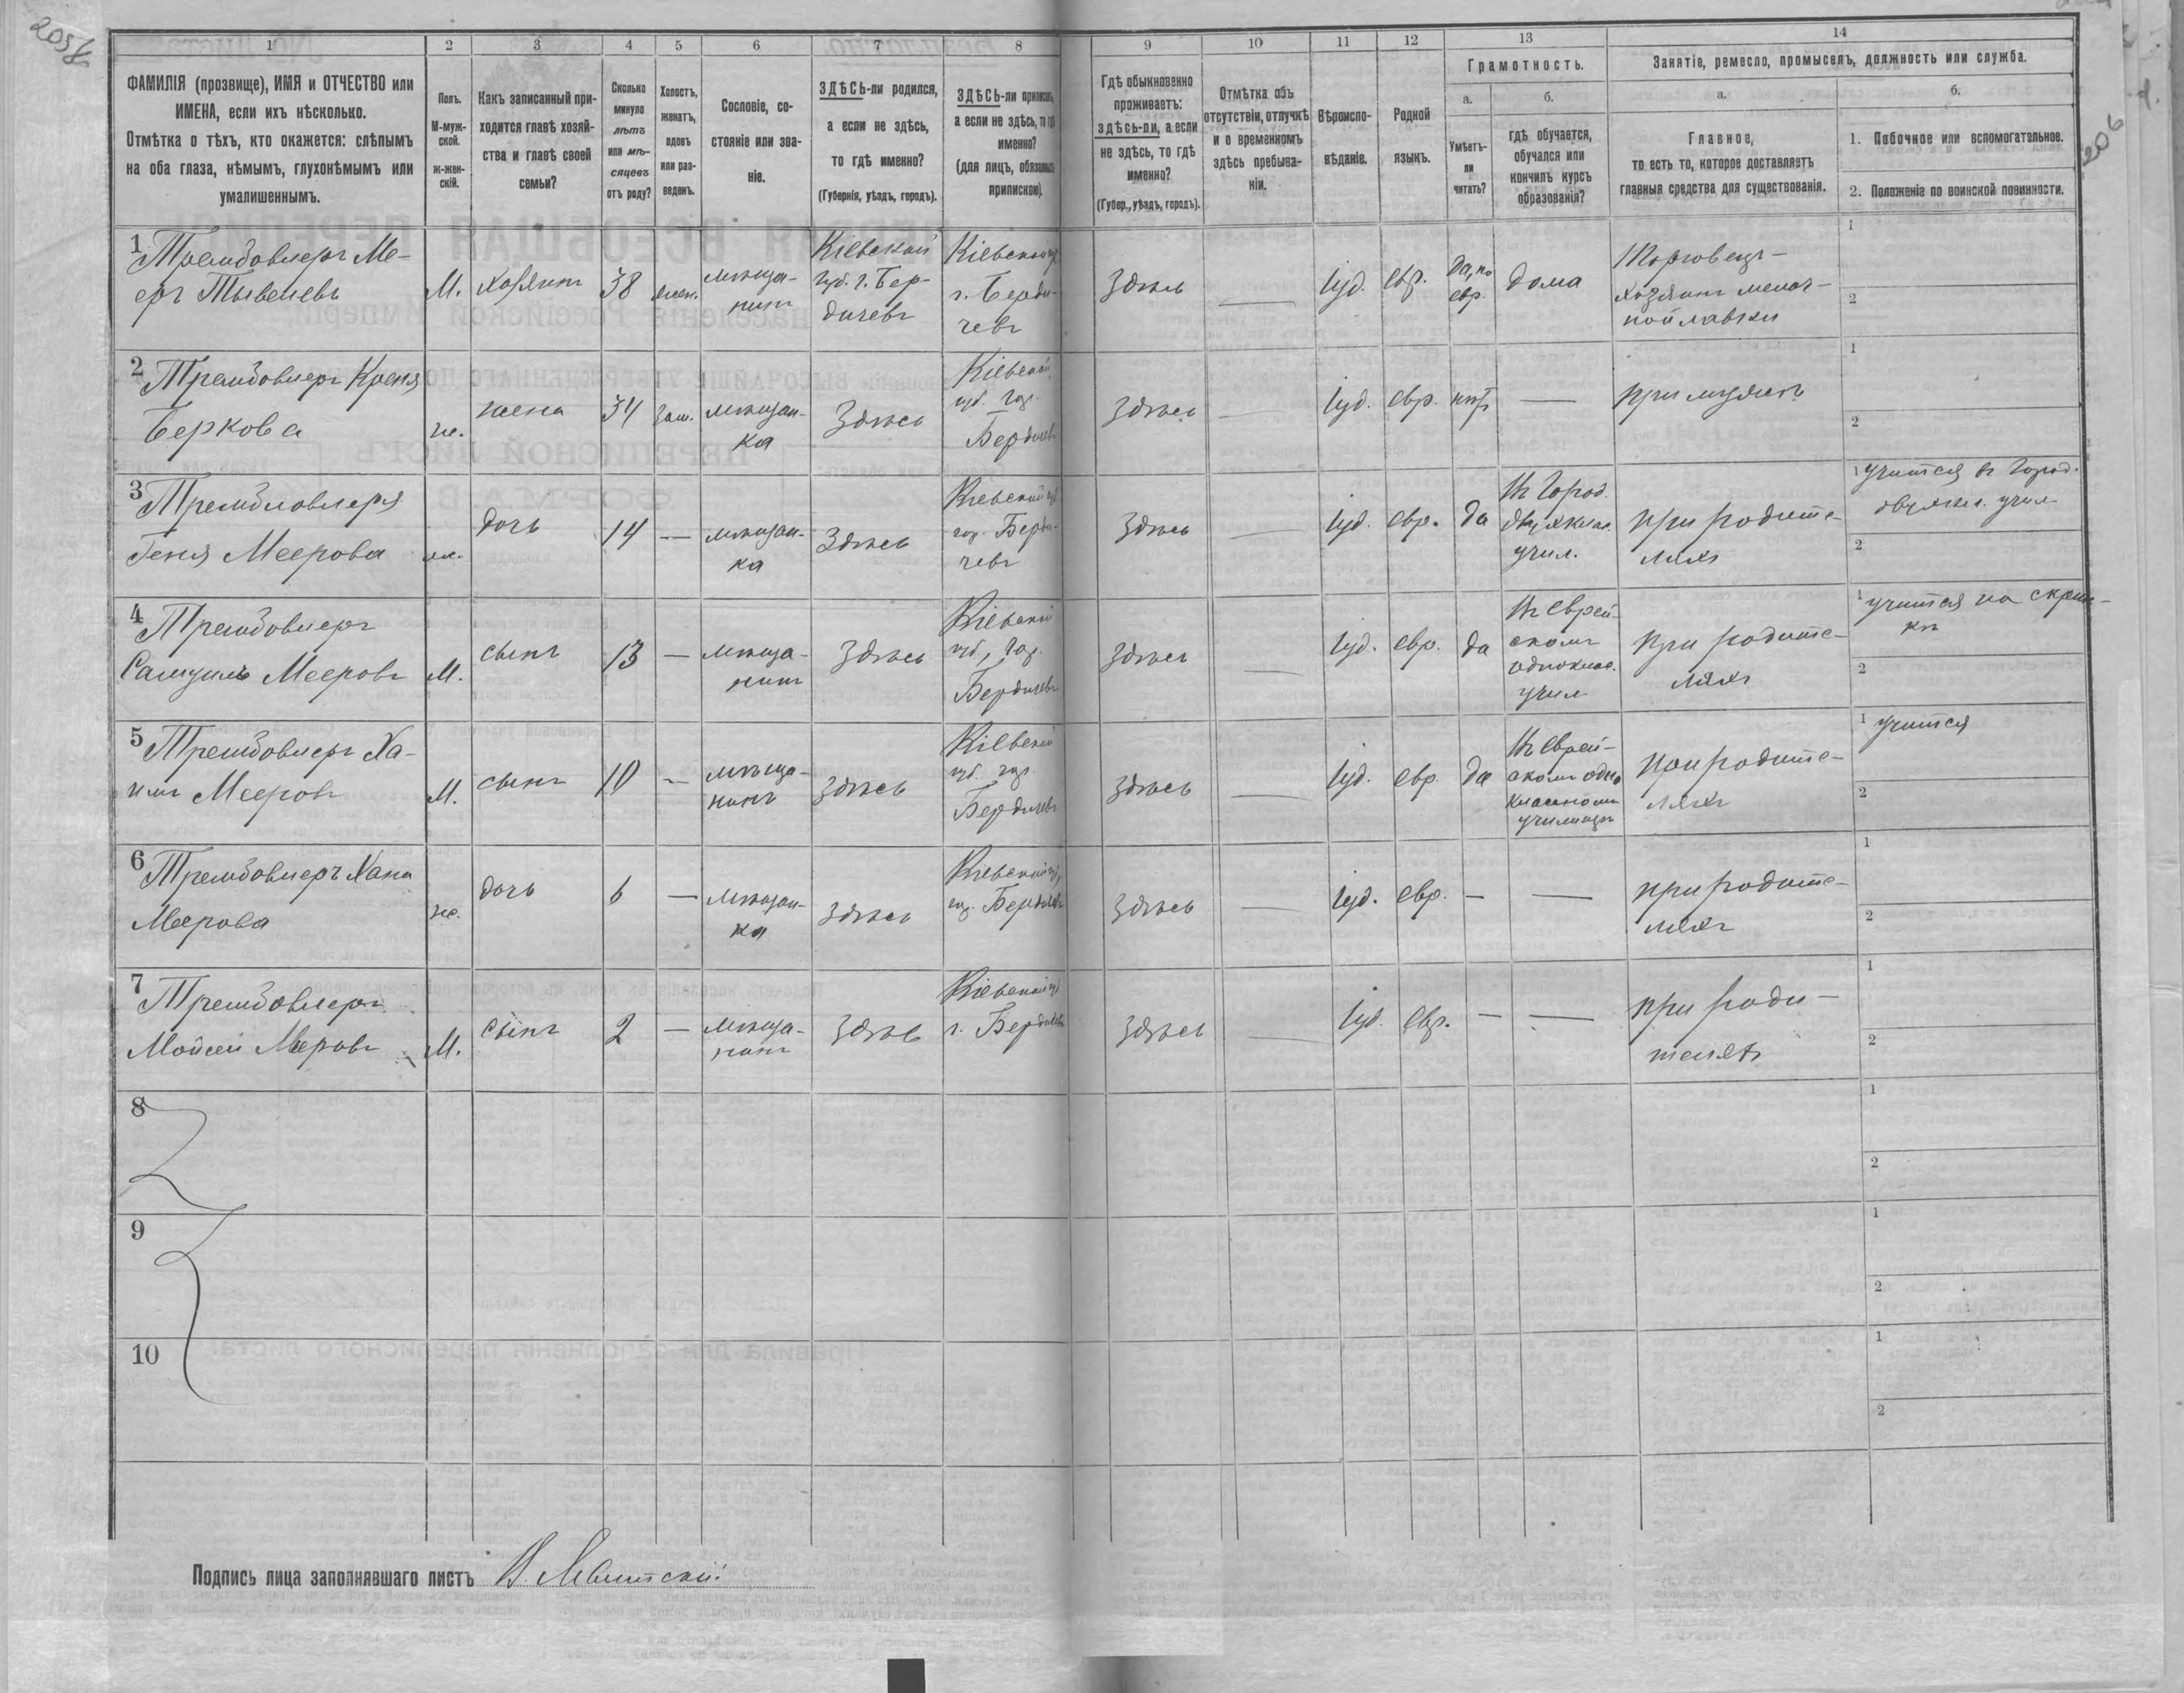 205 об
206
1
2
3
4
5
6
7
8
9
10
11
12
13
14
ФАМИЛІЯ (прозвище), ИМЯ и ОТЧЕСТВО или
ИМЕНА, если ихъ нѣсколько.
Отмѣтка о тѣхъ, кто окажется: слѣпымъ
на оба глаза, нѣмымъ, глухонѣмымъ или
умалишеннымъ.
Полъ.
М-муж-
ской.
ж-жен-
скій.
Какъ записанный при-
ходится главѣ хозяй-
ства и главѣ своей
семьи?
Сколько
минуло
лѣтъ
или мѣ-
сяцевъ
отъ роду?
Холостъ,
женатъ,
вдовъ
или раз-
веденъ.
Сословіе, со-
стояніе или зва-
ніе.
ЗДѢСЬ-ли родился,
а если не здѣсь,
то гдѣ именно?
(Губернія, уѣздъ, городъ).
ЗДѢСЬ-ли приписанъ,
а если не здѣсь, то гдѣ
именно?
(для лицъ, обязанныхъ
припискою)
Гдѣ обыкновенно
проживаетъ:
здѣсь-ли, а если
не здѣсь, то гдѣ
именно?
(Губер., уѣздъ, городъ).
Отмѣтка объ
отсутствіи, отлучкѣ
и о временномъ
здѣсь пребыва-
ніи.
Вѣроиспо-
вѣданіе.
Родной
языкъ.
Грамотность.
а.
б.
Умѣетъ-
ли
читать?
гдѣ обучается,
обучался или
кончилъ курсъ
образованія?
Занятіе, ремесло, промыселъ, должность или служба.
а.
б.
Главное,
то есть то, которое доставляетъ
главныя средства для существованія.
1. Побочное или вспомогательное.
2. Положеніе по воинской повинности.
1 Трембовлеръ Ме-
еръ Тывелевъ
М.
хозяинъ
38
жен.
мѣща-
нинъ
Кіевской
губ. г. Бер-
дичевъ
Кіевской губ
г. Берди-
чевъ
Здѣсь
Іуд.
евр.
да, по
евр.
дома
Торговецъ-
хозяинъ мелоч-
ной лавки
1
2
2 Трембовлеръ Креня
Беркова
ж.
жена
34
зам.
мѣщан-
ка
Здѣсь
Кіевской
губ. гор.
Бердичевъ
Здѣсь
Іуд.
евр.
нѣтъ
—
при мужѣ
1
2
3 Трембловлеръ
Геня Меерова
ж.
дочь
14
—
мѣщан-
ка
Здѣсь
Кіевской губ
гор. Берди-
чевъ
Здѣсь
Іуд.
евр.
да
Въ город.
двухклас.
учил.
при родите-
ляхъ
1 учится въ город.
двухкл. учил.
2
4 Трембовлеръ
Самуилъ Мееровъ
М.
сынъ
13
—
мѣща-
нинъ
Здѣсь
Кіевской
губ., гор.
Бердичевъ
Здѣсь
Іуд.
евр.
да
Въ еврей-
скомъ
одноклас.
учил.
при родите-
ляхъ
1 учится на скрип-
кѣ
2
5 Трембовлеръ Ха-
имъ Мееровъ
М.
сынъ
10
—
мѣща-
нинъ
здѣсь
Кіевской
губ. гор.
Бердичевъ
здѣсь
Іуд.
евр.
да
Въ еврей-
скомъ одно
классномъ
училищѣ
при родите-
ляхъ
1 учится
2
6 Трембовлеръ Хана
Меерова
ж.
дочь
6
—
мѣщан-
ка
здѣсь
Кіевской губ,
гор. Бердичевъ
здѣсь
Іуд.
евр.
—
—
при родите-
ляхъ
1
2
7 Трембовлеръ
Мойсей Мееровъ
М.
сынъ
2
—
мѣща-
нинъ
Здѣсь
Кіевской губ
г. Бердичевъ
здѣсь
Іуд.
евр.
—
—
при роди-
теляхъ
1
2
8
1
2
9
1
2
10
1
2
Подпись лица заполнявшаго листъ